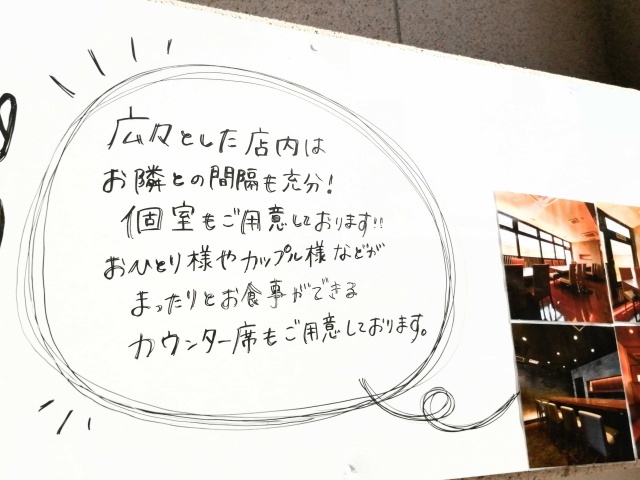 広々とした店内は
お隣との間隔も充分!
個室もご用意しております!!
おひとり様やカップル様などが
まったりとお食事ができる
カウンター席もご用意しております。